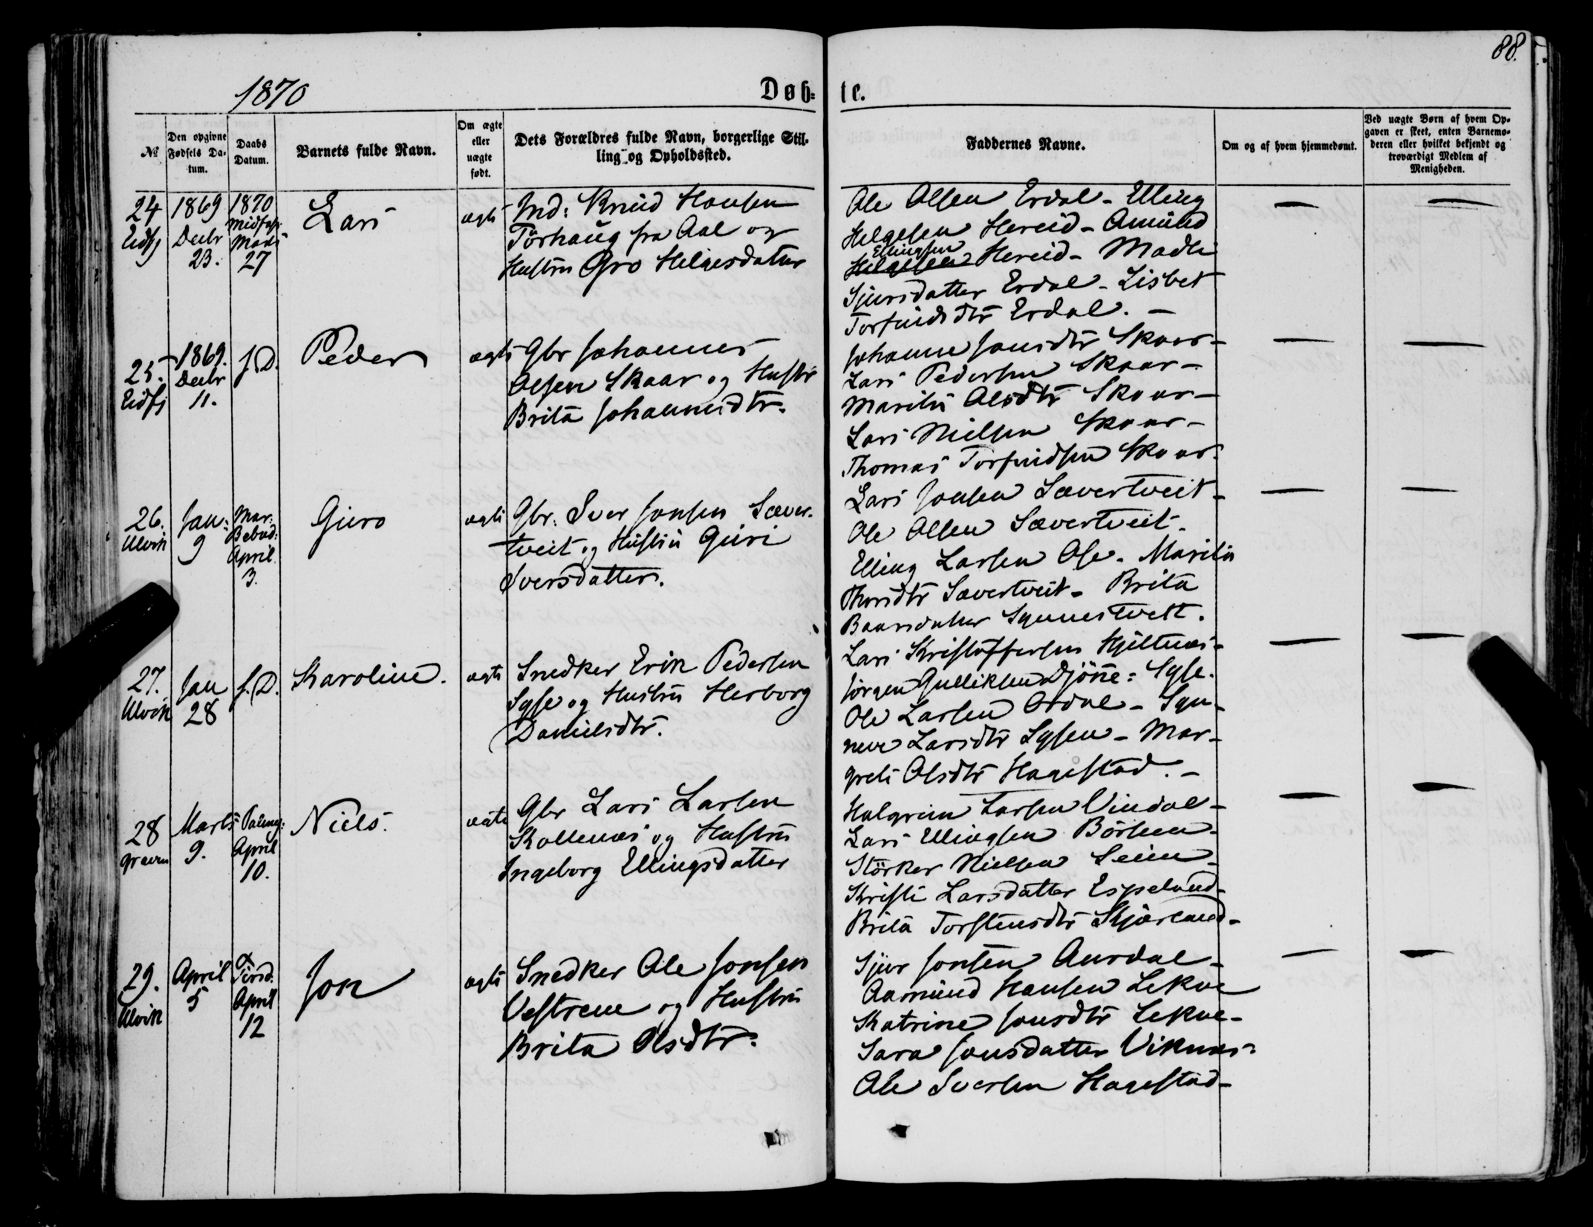 88.
1870
Døb-
te.
№
Den opgivne Fødsels Datum.
Daabs Datum.
Barnets fulde Navn.
Om ægte eller uægte født.
Dets Forældres fulde Navn, borgerlige Stilling og Opholdssted.
Faddernes Navne.
Om og af hvem hjemmedømt.
Ved uægte Børn af hvem Opgaven er skeet, enten Barnemoderen eller hvilket bekjendt og troværdigt Medlem af Menigheden.
24
Eidfj
1869
Decbr
23.
1870
Midfast
Marts
27
Lars
ægte
Ind: Knud Hansen
Torhaug fra Aal og
Hustru Gro Helgesdatter
Ole Olsen Erdal - Elling
Helgesen Hereid - Amund
Ellingsen
Helgesen Hereid - Madli
Sjursdatter Erdal - Lisbet
Torfindsdtr Erdal. -
25.
Eidfj
1869.
Decbr
11.
s. D.
Peder
ægte
Gbr Johannes
Olsen Skaar og Hustr
Brita Johannesdtr.
Johanne Jonsdtr Skaar -
Lars Pedersen Skaar -
Marita Olsdtr Skaar -
Lars Nielsen Skaar -
Thomas Torfindsen Skaar.
26.
Ulvik
Jan:
9
Mar.
Bebud:
April
3.
Guro
ægte
Gbr. Iver Jonsen Sæver-
tveit og Hustru Guri
Iversdatter.
Lars Jonsen Sævertveit -
Ole Olsen Sævertveit.
Elling Larsen Ose. Marita
Thorsdtr Sævertveit - Brita
Baarsdatter Synnestveit.
27.
Ulvik
Jan
28
s. D.
Karoline.
ægte
Snedker Erik Pedersen
Syse og Hustru Herborg
Danielsdtr.
Lars Kristoffersen Hjeltnæs -
Jørgen Gulliksen Djöne: Syse.
Ole Larsen Ordal - Syn-
neve Larsdtr Sysen - Mar-
grete Olsdtr Hagestad. -
28
graven
Marts
9.
Palmes:
April
10.
Niels.
ægte
Gbr Lars Larsen
Kollenæs og Hustru
Ingeborg Ellingsdatter
Halgrim Larsen Vindal -
Lars Ellingsen Börsem -
Störker Nielsen Seim -
Kristi Larsdatter Espeland -
Brita Torstensdtr Skjærland -
29.
Ulvik
April
5
2
Tirsd.
April
12
Jon
ægte
Snedker Ole Jonsen
Vestrene og Hustru
Brita Olsdtr.
Sjur Jonsen Aurdal -
Aamund Hansen Lekve
Katrine Jonsdtr Lekve -
Sara Jonsdatter Viknæs -
Ole Iversen Hagestad -